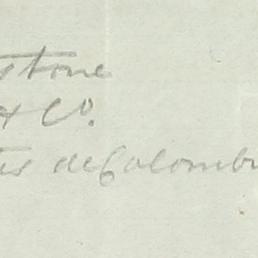 stone
& Co.
tes de Colombi